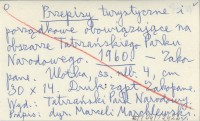 Przepisy turystyczne i
porządkowe obowiązujące na
obszarze Tatrzańskiego Parku
Narodowego. 1960 – Zako-
pane. Ulotka, ss. nlb. 4, cm
30 x 14. Druk: zapt. Zakopane.
Wyd.: Tatrzański Park Narodowy.
Podpis: dyr. Marceli Marchlewski.